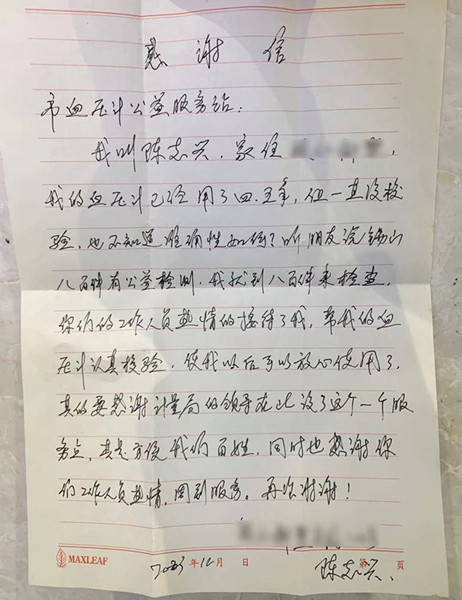 感谢信
市血压计公益服务站：
我叫陈志兴，家住
我的血压计已经用了四.五年，但一直没校
验，也不知道准确性如何？听朋友说锡山
八百伴有公益检测，我就到八百伴来检查，
你们的工作人员热情的接待了我，帮我的血
压计认真校验，使我以后可以放心使用了，
真的要感谢计量局的领导在此设了这个一个服
务点，真是方便我们百姓，同时也感谢你
们工作人员热情，周到服务。再次谢谢！
MAXLEAF 2023年12月 日 第 页
陈志兴